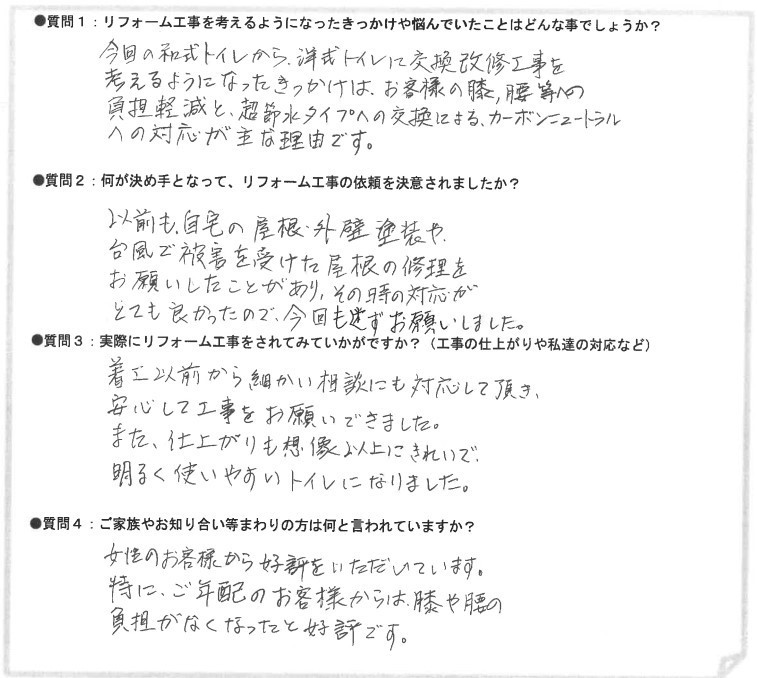 ●質問１：リフォーム工事を考えるようになったきっかけや悩んでいたことはどんな事でしょうか？
今回の和式トイレから、洋式トイレに交換改修工事を
考えるようになったきっかけは、お客様の膝,腰等への
負担軽減と、超節水タイプへの交換による、カーボンニュートラル
への対応が主な理由です。
●質問２：何が決め手となって、リフォーム工事の依頼を決意されましたか？
以前も、自宅の屋根・外壁塗装や、
台風で被害を受けた屋根の修理を
お願いしたことがあり、その時の対応が
とても良かったので、今回も迷ずお願いしました。
●質問３：実際にリフォーム工事をされてみていかがですか？（工事の仕上がりや私達の対応など）
着工以前から細かい相談にも対応して頂き、
安心して工事をお願いできました。
また、仕上がりも想像以上にきれいで、
明るく使いやすいトイレになりました。
●質問４：ご家族やお知り合い等まわりの方は何と言われていますか？
女性のお客様から好評をいただいています。
特に、ご年配のお客様からは、膝や腰の
負担がなくなったと好評です。